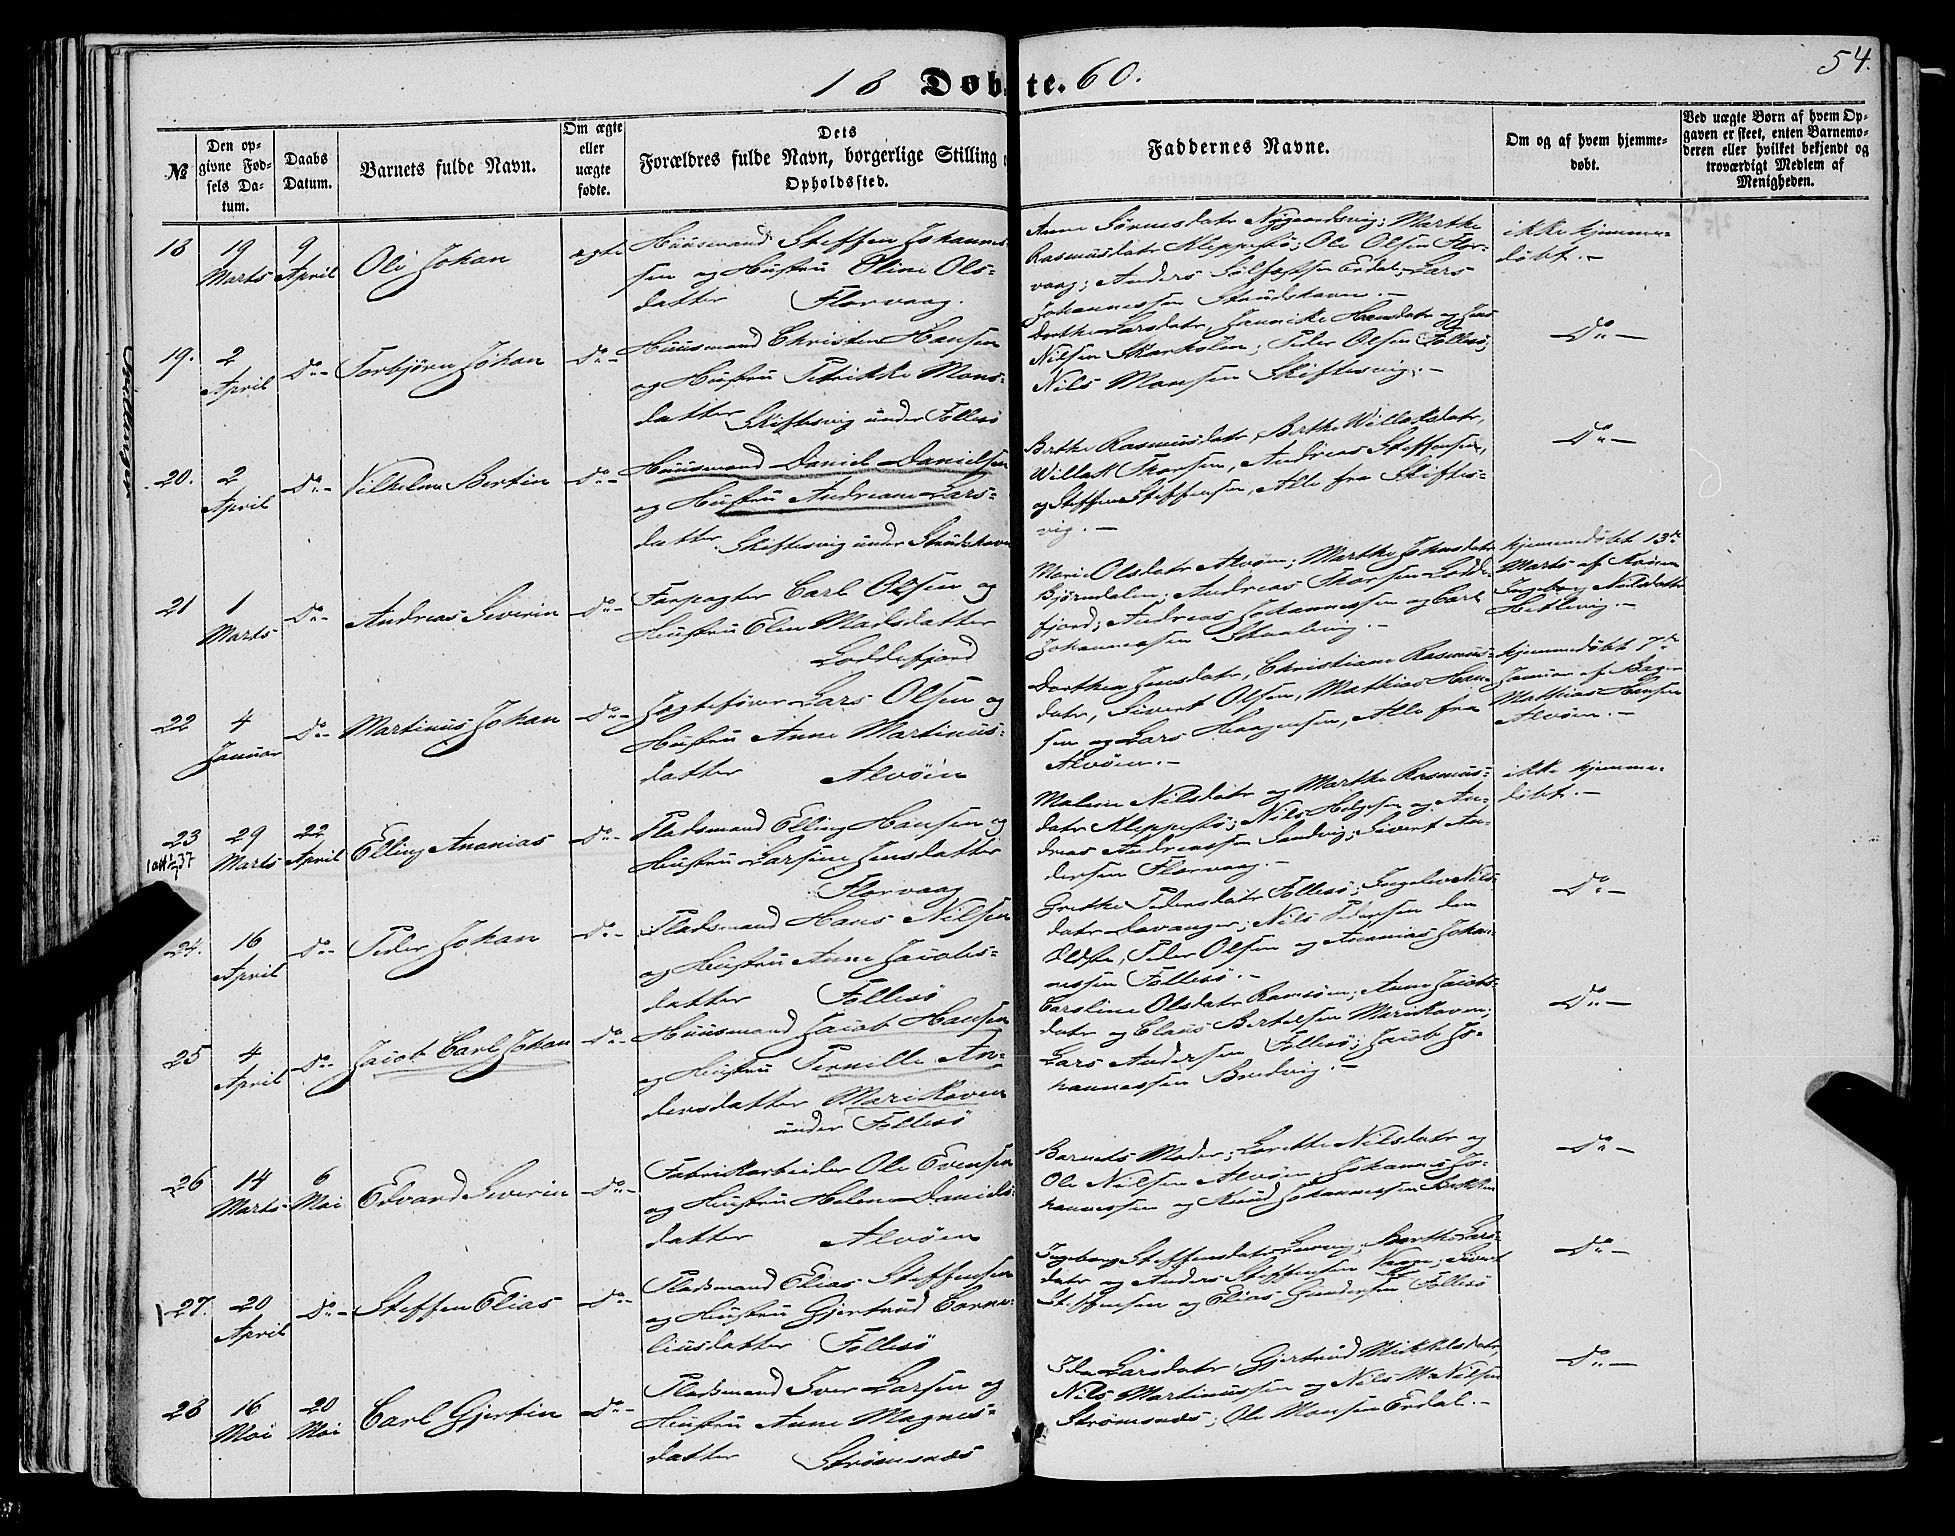 54.
18 Døbte. 60.
№
Den opgivne Fødsels Datum.
Daabs Datum.
Barnets fulde Navn.
Om ægte eller uægte fødte.
Dets Forældres fulde Navn, borgerlige Stilling
Opholdssted.
Faddernes Navne.
Om og af hvem hjemmedøbt.
Ved uægte Børn af hvem Opgaven er skeet, enten Barnemoderen eller hvilket bekjendt og troværdigt Medlem af Menigheden.
18
19 Marts
9 April
Ole Johan
ægte
Huusmand Steffen Johannes-
sen og Hustru Oline Ols-
datter Florvaag.
Anne Sørensdatr Nygaardsvig; Marthe
Rasmusdatr Kleppestø; Ole Olsen Flor-
vaag; Anders Erdal; Lars
Johannessen Strudshavn.-
ikke hjemme-
døbt.-
19.
2 April
Do-
Torbjørn Johan
Do-
Huusmand Christen Hansen
og Hustru Petrikke Mons-
datter Skiftesvig under Follesø
Dorthe Larsdatr, Jannike Hansdatr og Jens
Nilsen Skarholm; Peder Olsen Follesø;
Nils Monsen Skiftesvig.-
Do-
20.
2 April
Do-
Vilhelm Bertin
Do-
Huusmand Daniel Danielsen
og Hustru Andrine Lars-
datter. Skiftesvig under Strudshavn
Berthe Rasmusdatr, Berthe Willaksdatr,
Willak Thorsen, Andreas Steffensen,
og Steffen Steffensen, Alle fra Skiftes-
vig.-
Do-
21
1 Marts
Do-
Andreas Severin
Do-
Forpagter Carl Olsen og
Hustru Elen Madsdatter
Loddefjord
Marie Olsdatr Alvøen; Marthe Johnsdatr
Bjørndalen; Andreas Thorsen Lodde-
fjord; Andreas Johannessen og Carl
Johannessen
hjemmedøbt 13de
Marts af Konen
Ingeborg Nilsdatter
Hetlevig.-
22
4 Januar
Do-
Martinus Johan
Do-
Jagtefører Lars Olsen og
Hustru Anne Martinus-
datter Alvøen
Dorthea Jensdatr, Christiane Rasmus-
datr, Sivert Olsen, Mathias Han-
sen og Lars Haagensen, Alle fra
Alvøen.-
hjemmedøbt 7de
Januar af Bager
Mathias Hansen
Alvøen.-
23
29 Marts
22 April
Elling Ananias
Do-
Pladsmand Elling Hansen og
Hustru Larsine Jensdatter
Florvaag
Malene Nilsdatr og Marthe Rasmus-
datr Kleppestø; Nils Helgesen og An-
dreas Andreassen Sandvig; Sivert An-
dersen Florvaag.-
ikke hjemme-
døbt.-
24.
16 April
Do-
Peder Johan
Do-
Pladsmand Hans Nilsen
og Hustru Anne Jacobs-
datter Follesø
Grethe Pedersdatr Follesø; Ingelev Nils-
datr Davanger; Nils Pedersen den
Ældste, Peder Olsen og Ananias Johan-
nessen Follesø.-
Do-
25
4 April
Do-
Jacob Carl Johan
Do-
Huusmand Jacob Hansen
og Hustru Pernille An-
dersdatter Marikoven
under Follesø
Caroline Olsdatr Ramsøen; Anne Jacobs-
datr og Claus Bertelsen Marikoven;
Lars Andersen Follesø; Jacob Jo-
hannessen Bredvig.-
Do-
26
14 Marts
6 Mai
Edvard Severin
Do-
Fabrikarbeider Ole Evensen
og Hustru Helene Daniels-
datter Alvøen
Barnets Moder; Lorethe Nilsdatr og
Ole Nilsen Alvøen; Johannes Jo-
hannessen og Knud Johannessen
Do-
27.
20 April
Do-
Steffen Elias
Do-
Pladsmand Elias Steffensen
og Hustru Gjertrud Corne-
liusdatter Follesø
Ingeborg Steffensdatr Berthe Lars-
datr og Anders Steffensen Sivert
Steffensen og Elias Gundersen Follesø
Do-
28
16 Mai
20 Mai
Carl Gjertin
Do-
Pladsmand Iver Larsen og
Hustru Anne Magnes-
datter Strømsnæs
Ida Larsdatr, Gjertrud Mikkelsdatr,
Nils Martinussen og Nils M. Nilsen
Strømsnæs; Ole Monsen Erdal.-
Do-